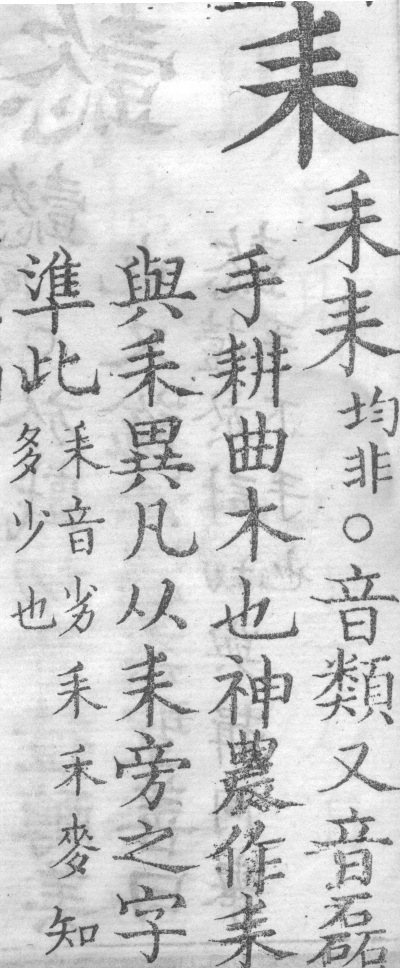 耒
耒耒均非○音類又音磊
手耕曲木也神農作耒
與耒異凡从耒旁之字
準此
耒音劣耒禾麥知
多少也